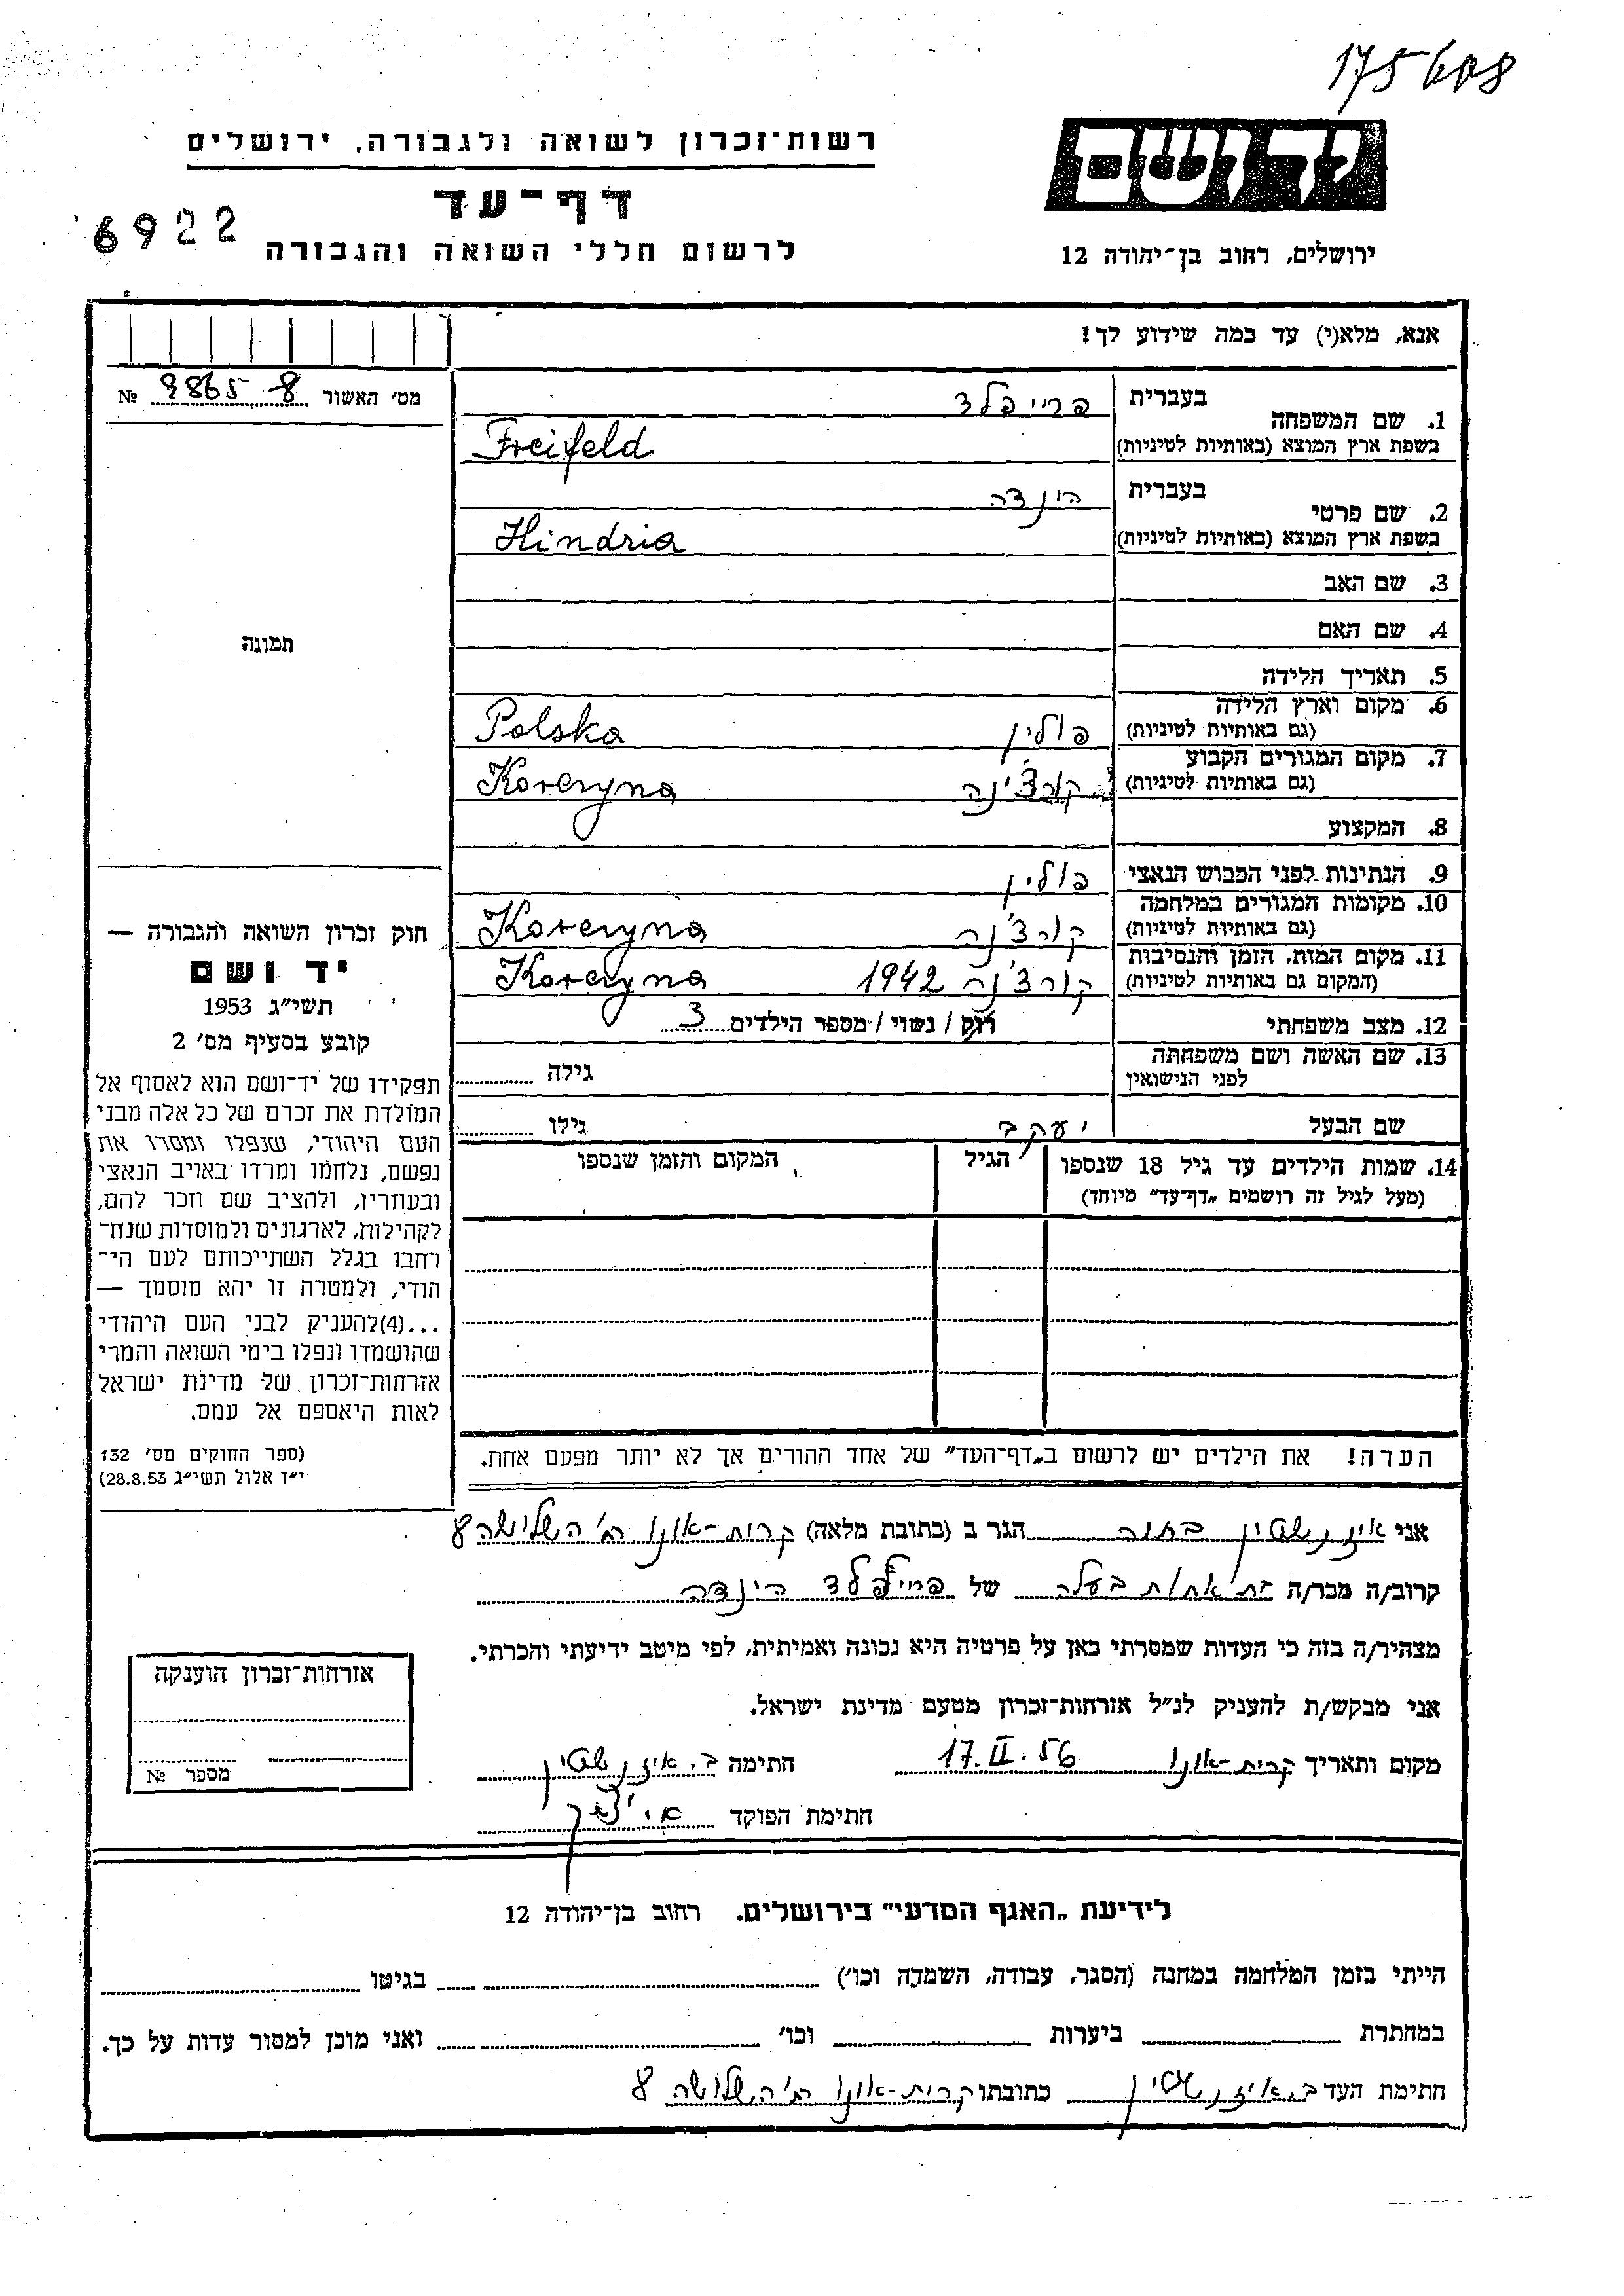 175608
רשות־זכרון לשואה ולגבורה, ירושלים
דף־עד
לרשום חללי השואה והגבורה
6922
יד ושם
ירושלים, רחוב בן־יהודה 12
אנא, מלא(י) עד כמה שידוע לך!
מס' האשור 8 9865 №
תמונה
1. שם המשפחה
בעברית פרייפלד
בשפת ארץ המוצא (באותיות לטיניות) Freifeld
2. שם פרטי
בעברית הינדה
בשפת ארץ המוצא (באותיות לטיניות) Hindria
3. שם האב
4. שם האם
5. תאריך הלידה
6. מקום וארץ הלידה
(גם באותיות לטיניות) פולין Polska
7. מקום המגורים הקבוע
(גם באותיות לטיניות) קורצ'ינה Korczyna
8. המקצוע
9. הנתינות לפני הכבוש הנאצי פולין
10. מקומות המגורים במלחמה
(גם באותיות לטיניות) קורצ'נה Korczyna
11. מקום המות, הזמן והנסיבות
(המקום גם באותיות לטיניות) קורצ'נה 1942 Korczyna
12. מצב משפחתי רוק / נשוי / מספר הילדים 3
13. שם האשה ושם משפחתה
לפני הנישואין גילה
שם הבעל יעקב גילו
14. שמות הילדים עד גיל 18 שנספו הגיל המקום והזמן שנספו
(מעל לגיל זה רושמים „דף־עד" מיוחד)
הערה! את הילדים יש לרשום ב„דף־העד" של אחד ההורים אך לא יותר מפעם אחת.
חוק זכרון השואה והגבורה —
יד ושם
תשי"ג 1953
קובע בסעיף מס' 2
תפקידו של יד־ושם הוא לאסוף אל
המולדת את זכרם של כל אלה מבני
העם היהודי, שנפלו ומסרו את
נפשם, נלחמו ומרדו באויב הנאצי
ובעוזריו, ולהציב שם וזכר להם,
לקהילות, לארגונים ולמוסדות שנח־
רחבו בגלל השתייכותם לעם הי־
הודי, ולמטרה זו יהא מוסמך —
...(4)להעניק לבני העם היהודי
שהושמדו ונפלו בימי השואה והמרי
אזרחות־זכרון של מדינת ישראל
לאות היאספם אל עמם.
(ספר החוקים מס' 132
י"ז אלול תשי"ג 28.8.53)
אני איזנשטין הגר ב (כתובת מלאה) קרית-אונו רח' השלושה 8
קרוב/ה מכר/ה בת אחות בעלה של פרייפלד הינדה
מצהיר/ה בזה כי העדות שמסרתי כאן על פרטיה היא נכונה ואמיתית, לפי מיטב ידיעתי והכרתי.
אני מבקש/ת להעניק לנ"ל אזרחות־זכרון מטעם מדינת ישראל.
מקום ותאריך קרית-אונו 17.II.56 חתימה ב. איזנשטין
חתימת הפוקד
אזרחות־זכרון הוענקה
מספר №
לידיעת „האגף המדעי" בירושלים. רחוב בן־יהודה 12
הייתי בזמן המלחמה במחנה (הסגר, עבודה, השמדה וכו') בגיטו
במחתרת ביערות וכו' ואני מוכן למסור עדות על כך.
חתימת העד ב. איזנשטין כתובתו קרית-אונו רח' השלושה 8